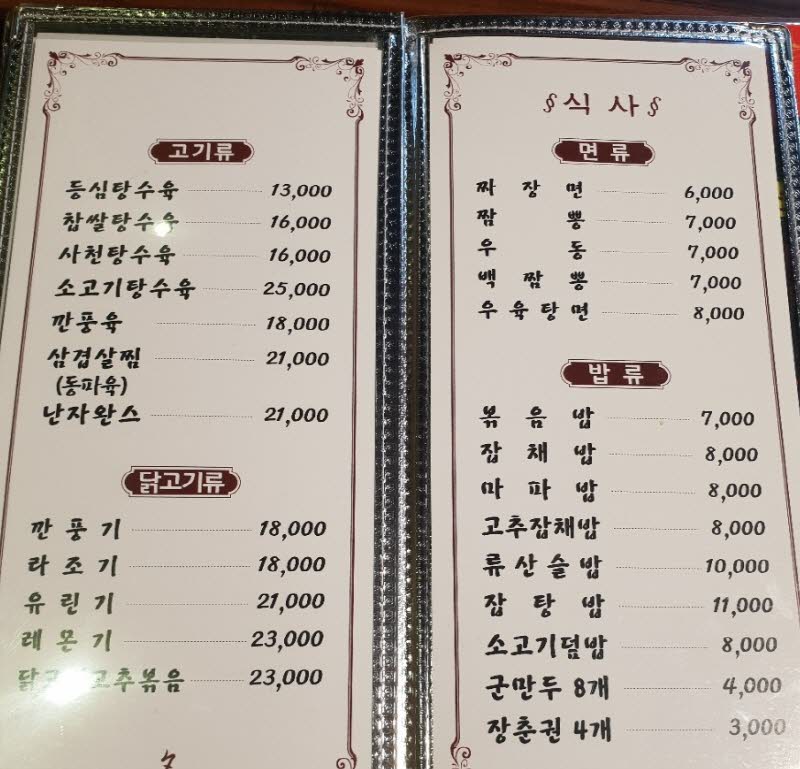 고기류
등심탕수육 13,000
찹쌀탕수육 16,000
사천탕수육 16,000
소고기탕수육 25,000
깐풍육 18,000
삼겹살찜 21,000
(동파육)
난자완스 21,000
닭고기류
깐풍기 18,000
라조기 18,000
유린기 21,000
레몬기 23,000
고추볶음 23,000
식사
면류
짜장면 6,000
짬뽕 7,000
우동 7,000
백짬뽕 7,000
우육탕면 8,000
밥류
볶음밥 7,000
잡채밥 8,000
마파밥 8,000
고추잡채밥 8,000
류산슬밥 10,000
잡탕밥 11,000
소고기덮밥 8,000
군만두 8개 4,000
장춘권 4개 3,000